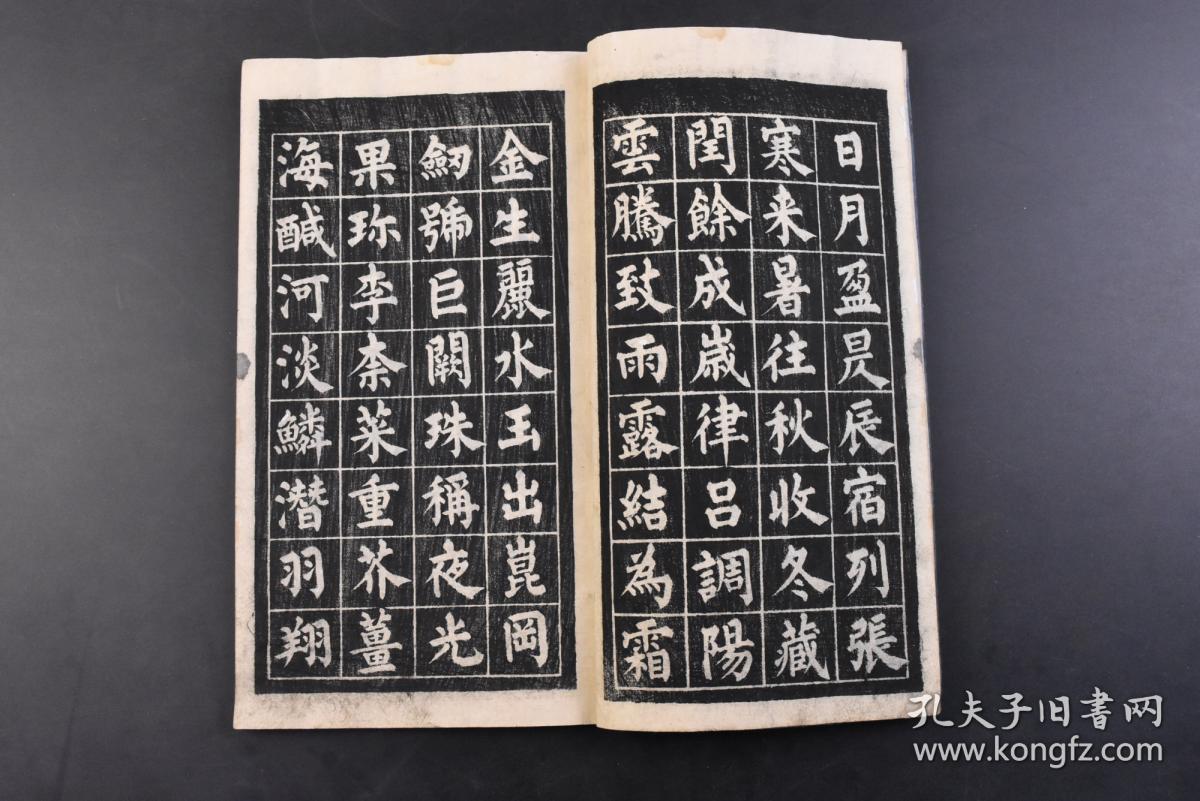 日月盈昃辰宿列張
寒来暑往秋收冬藏
閏餘成歲律呂調陽
雲騰致雨露結為霜
金生麗水玉出崑岡
劒號巨闕珠稱夜光
果珎李柰菜重芥薑
海醎河淡鱗潛羽翔
孔夫子旧書网
www.kongfz.com